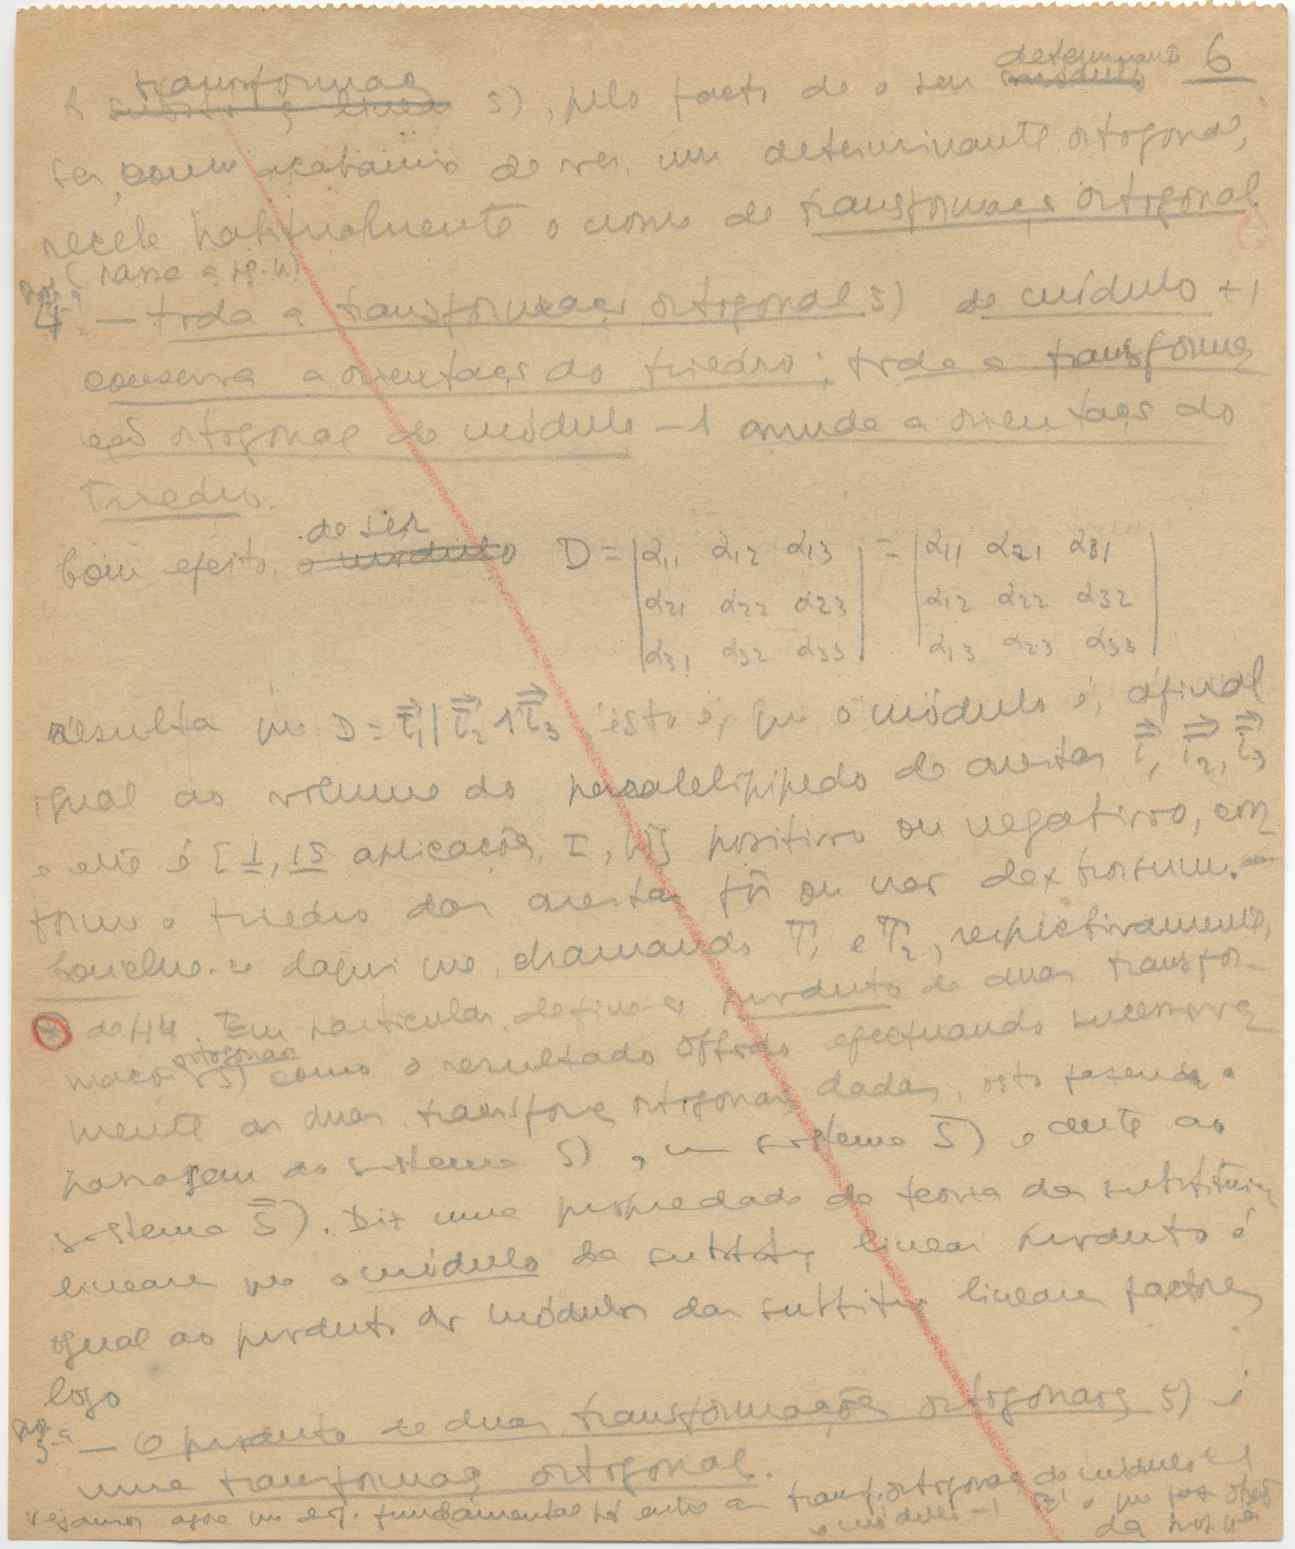 determinante 6
transformaç
A S), pelo facto de o seu módulo
ser, como acabamos de ver, um determinante ortogonal,
recebe habitualmente o nome de transformação ortogonal
(passa a pg. 4)
Prop. 4ª — toda a transformação ortogonal S) de módulo +1
conserva a orientação do triedro; toda a transforma
ção ortogonal de módulo -1 muda a orientação do
triedro.
de ser
Com efeito, o módulo D = | α11 α12 α13 | = | α11 α21 α31 |
| α21 α22 α23 | | α12 α22 α32 |
| α31 α32 α33 | | α13 α23 α33 |
resulta que D = i1 | i2 ∧ i3, isto é, que o módulo é, afinal
igual ao volume do paralelipipedo de arestas i1, i2, i3
e este é [1, 15 aplicações, I, ] positivo ou negativo, con
forme o triedro das arestas fôr ou não dextrorsum.
Conclue-se daqui que, chamando T1 e T2, respectivamente,
de 44 Em particular, define-se produto de duas transfor-
ortogonais
mações S) como o resultado obtido efectuando sucessiva
mente as duas transforç ortogonais dadas, isto fazendo a
passagem do sistema S) a um sistema S̄) e deste ao
sistema S̿). Diz uma propriedade da teoria das substituiç
lineares que o módulo da substituiç linear produto é
igual ao produto dos módulos das substituiç lineares factores,
logo
Prop. 5ª — O produto de duas transformações ortogonais S) é
uma transformaç ortogonal.
Vejamos agora que dif. fundamental há entre as transf. ortogonais de módulo +1
e módulo -1
da prop. 4ª